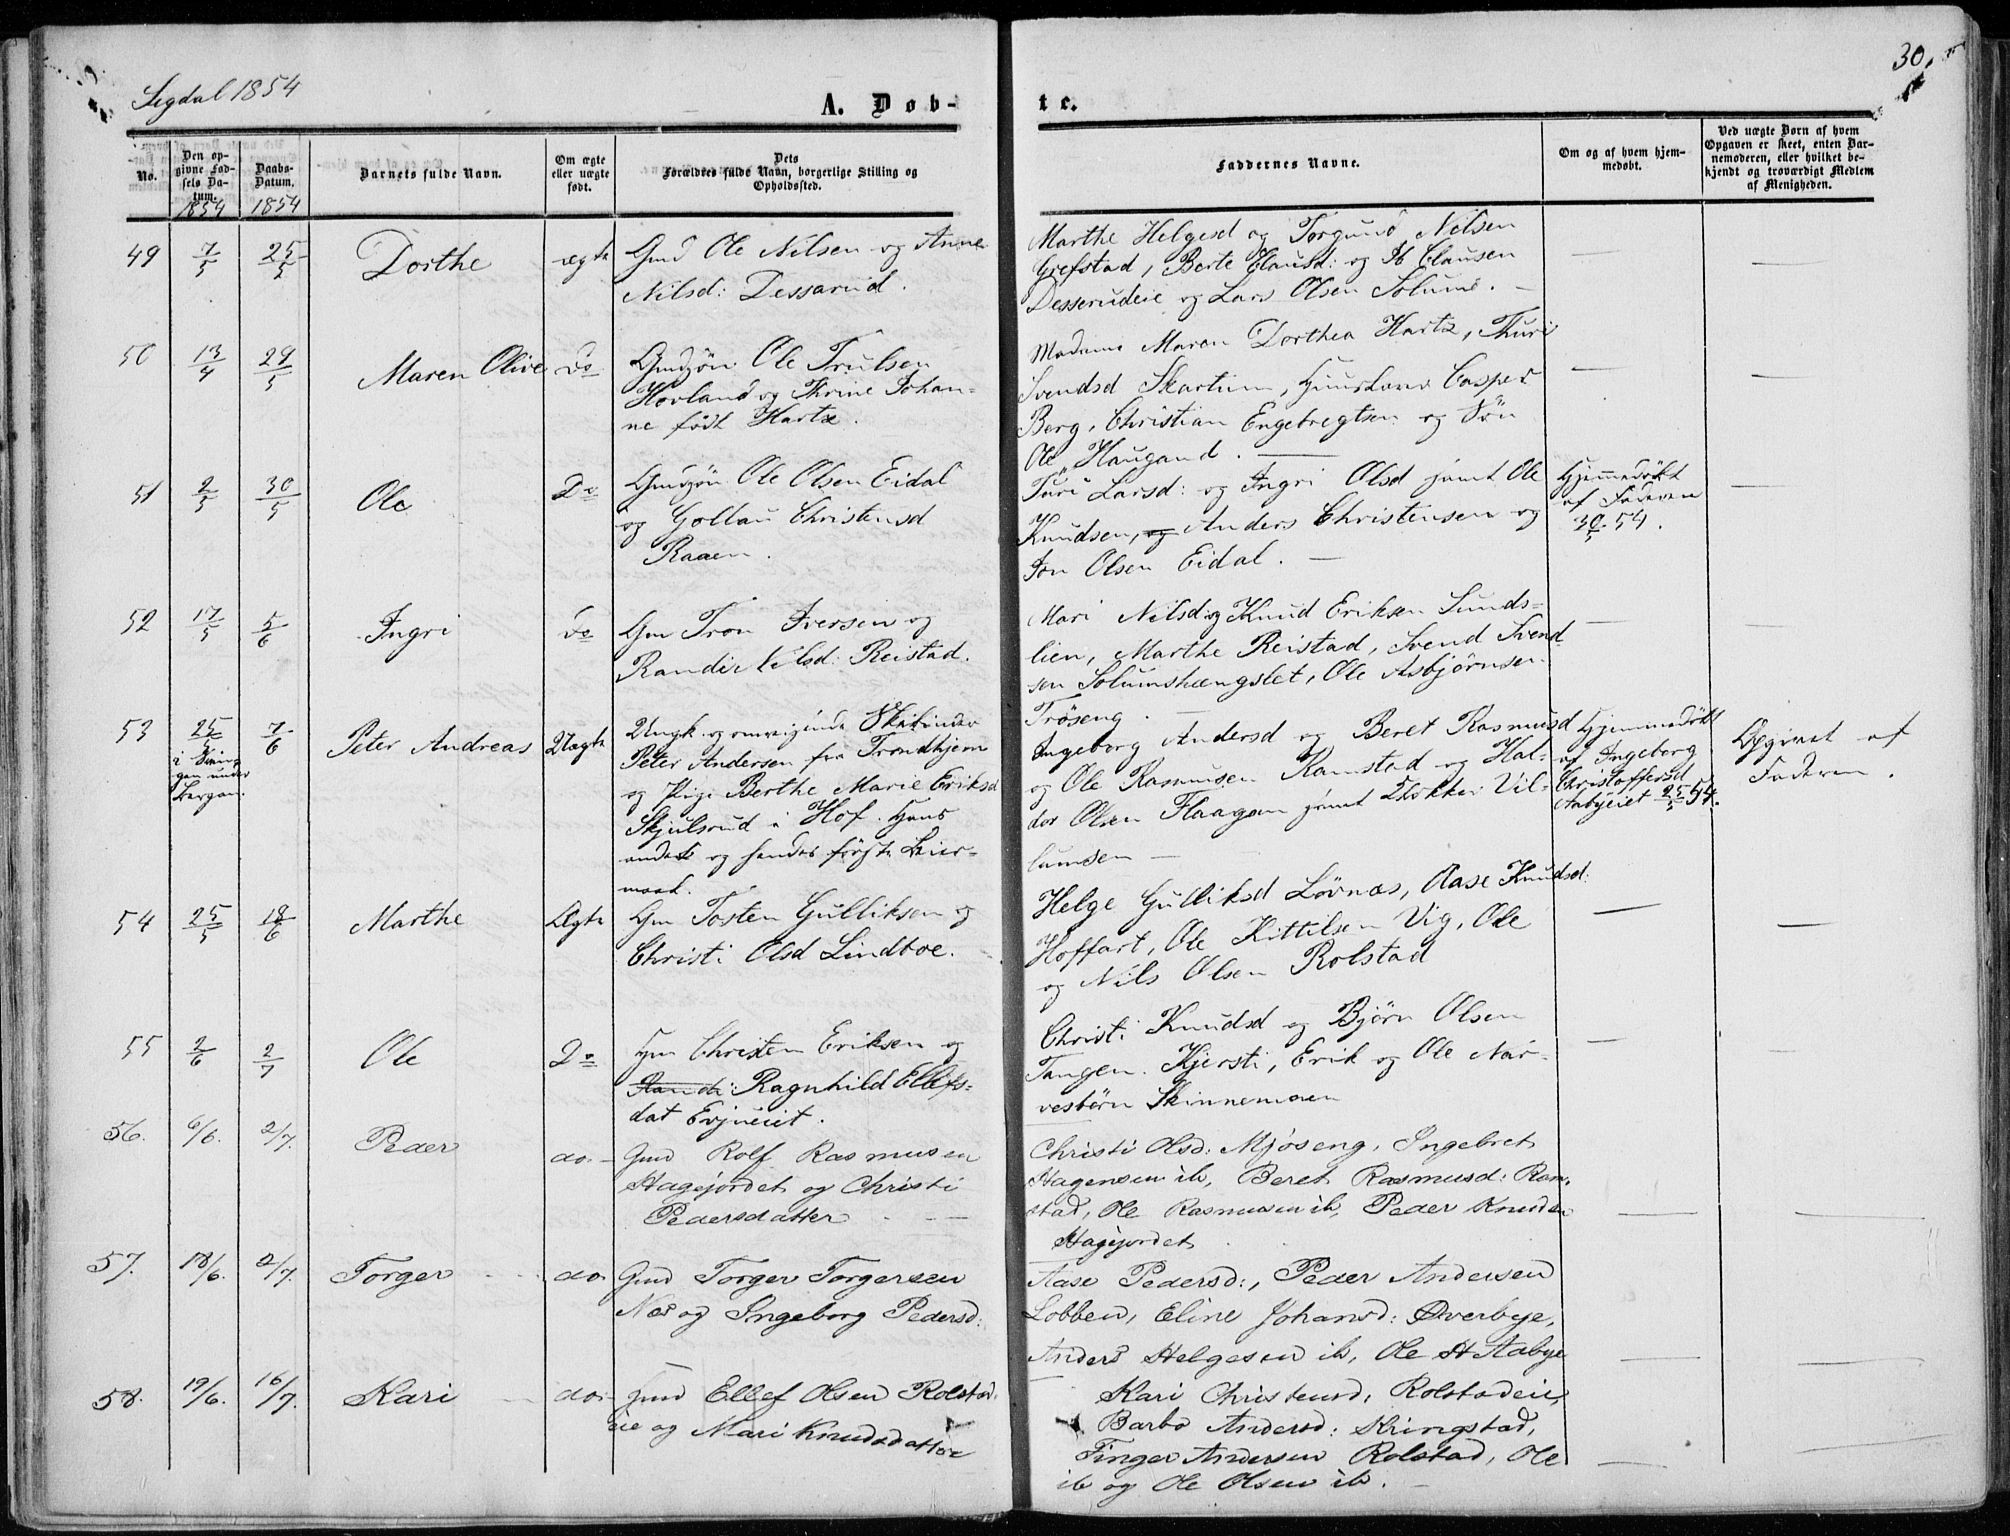 30.
Sigdal 1854
A. Døb-
te.
No.
Den opgivne Fødsels Datum.
1854
Daabs-Datum.
1854
Barnets fulde Navn.
Om ægte eller uægte født.
Dets Forældres fulde Navn, borgerlige Stilling og Opholdssted.
Faddernes Navne.
Om og af hvem hjemmedøbt.
Ved uægte Børn af hvem Opgaven er skeet, enten Barnemoderen, eller hvilket bekjendt og troværdigt Medlem af Menigheden.
49 7/5 25/5 Dorthe ægte Gmd Ole Nilsen og Anne
Nilsd: Dessarud.
Marthe Helgesd og Torgund Nilsen
Grefstad, Berte Clausd: og Ib Clausen
Desserudeie og Lars Olsen Solum. —
50 13/4 29/5 Maren Olive do Gmdsøn Ole Trulsen
Hovland og Thrine Johan-
ne født Hartz.
Madame Maren Dorthea Hartz, Thuri
Svendsd Skartum, Huuslærer Casper
Berg, Christian Engebregtsen og Søn
Ole Haugand. —
51 2/5 30/5 Ole Do Gmdsøn Ole Olsen Eidal
og Gollau Christensd
Raaen.
Turi Larsd: og Ingri Olsd samt Ole
Knudsen, og Anders Christensen og
Jon Olsen Eidal. —
Hjemmedøbt
af Faderen
30/5 54.
52 17/5 5/6 Ingri do Gm Tron Iversen og
Randi Nilsd: Reistad.
Mari Nilsd og Knud Eriksen Lunds-
lien, Marthe Reistad, Svend Svend
sen Solumshængslet, Ole Asbjørnsen
Trøseng. —
53 25/5 7/6 Peter Andreas Uægte Ungk. og omreisende
i
under
Bergan.
Peter Andersen fra Trondhjem
og Pige Berthe Marie Eriksd
Skjulsrud i Hof. Hans
andet og hendes første Leier-
maal.
Ingeborg Andersd og Beret Rasmusd
og Ole Rasmusen Ramstad og Hal-
dor Olsen Flaagan samt Vil-
lumsen —
Hjemmedøbt
af Ingeborg
Christoffersd
Aabyeiet 25/5 54.
Opgivet af
Faderen.
54 25/5 18/6 Marthe Ægte Gm Tosten Gulliksen og
Christi Olsd Lindboe.
Helge Gulliksd Løvnæs, Aase Knudsd:
Hoffart, Ole Kittilsen Vig, Ole
og Nils Olsen Rolstad
55 2/6 2/7 Ole Do Hm Christen Eriksen og
Randi: Ragnhild Ellefs-
dat Evjueiet.
Christi Knudsd og Bjørn Olsen
Tangen. Kjersti, Erik og Ole Nar-
vesbørn Skinnemoen
56. 6/6. 2/7. Peder do.- Gmd Rolf Rasmusen
Hagejordet og Christi
Pedersdatter
Christi Olsd: Mjøseng, Ingebret
Hagensen ib, Beret Rasmusd: Ram-
stad, Ole Rasmusen ib, Peder Knudsen
Hagejordet
57. 18/6. 2/7. Torger do. Gmd Torger Torgersen
Næs og Ingeborg Pedersd:
Aase Pedersd:, Peder Andersen
Lobben, Eline Johansd: Øverbye,
Anders Helgesen ib, Ole H Aabye
58. 19/6. 16/7. Kari do.- Gmd Ellef Olsen Rolstad-
eie og Mari Knudsdatter
Kari Christensd: Rolstadeie,
Barbo Andersd: Kringstad,
Finger Andersen Rolstad, Ole
ib og Ole Olsen ib.